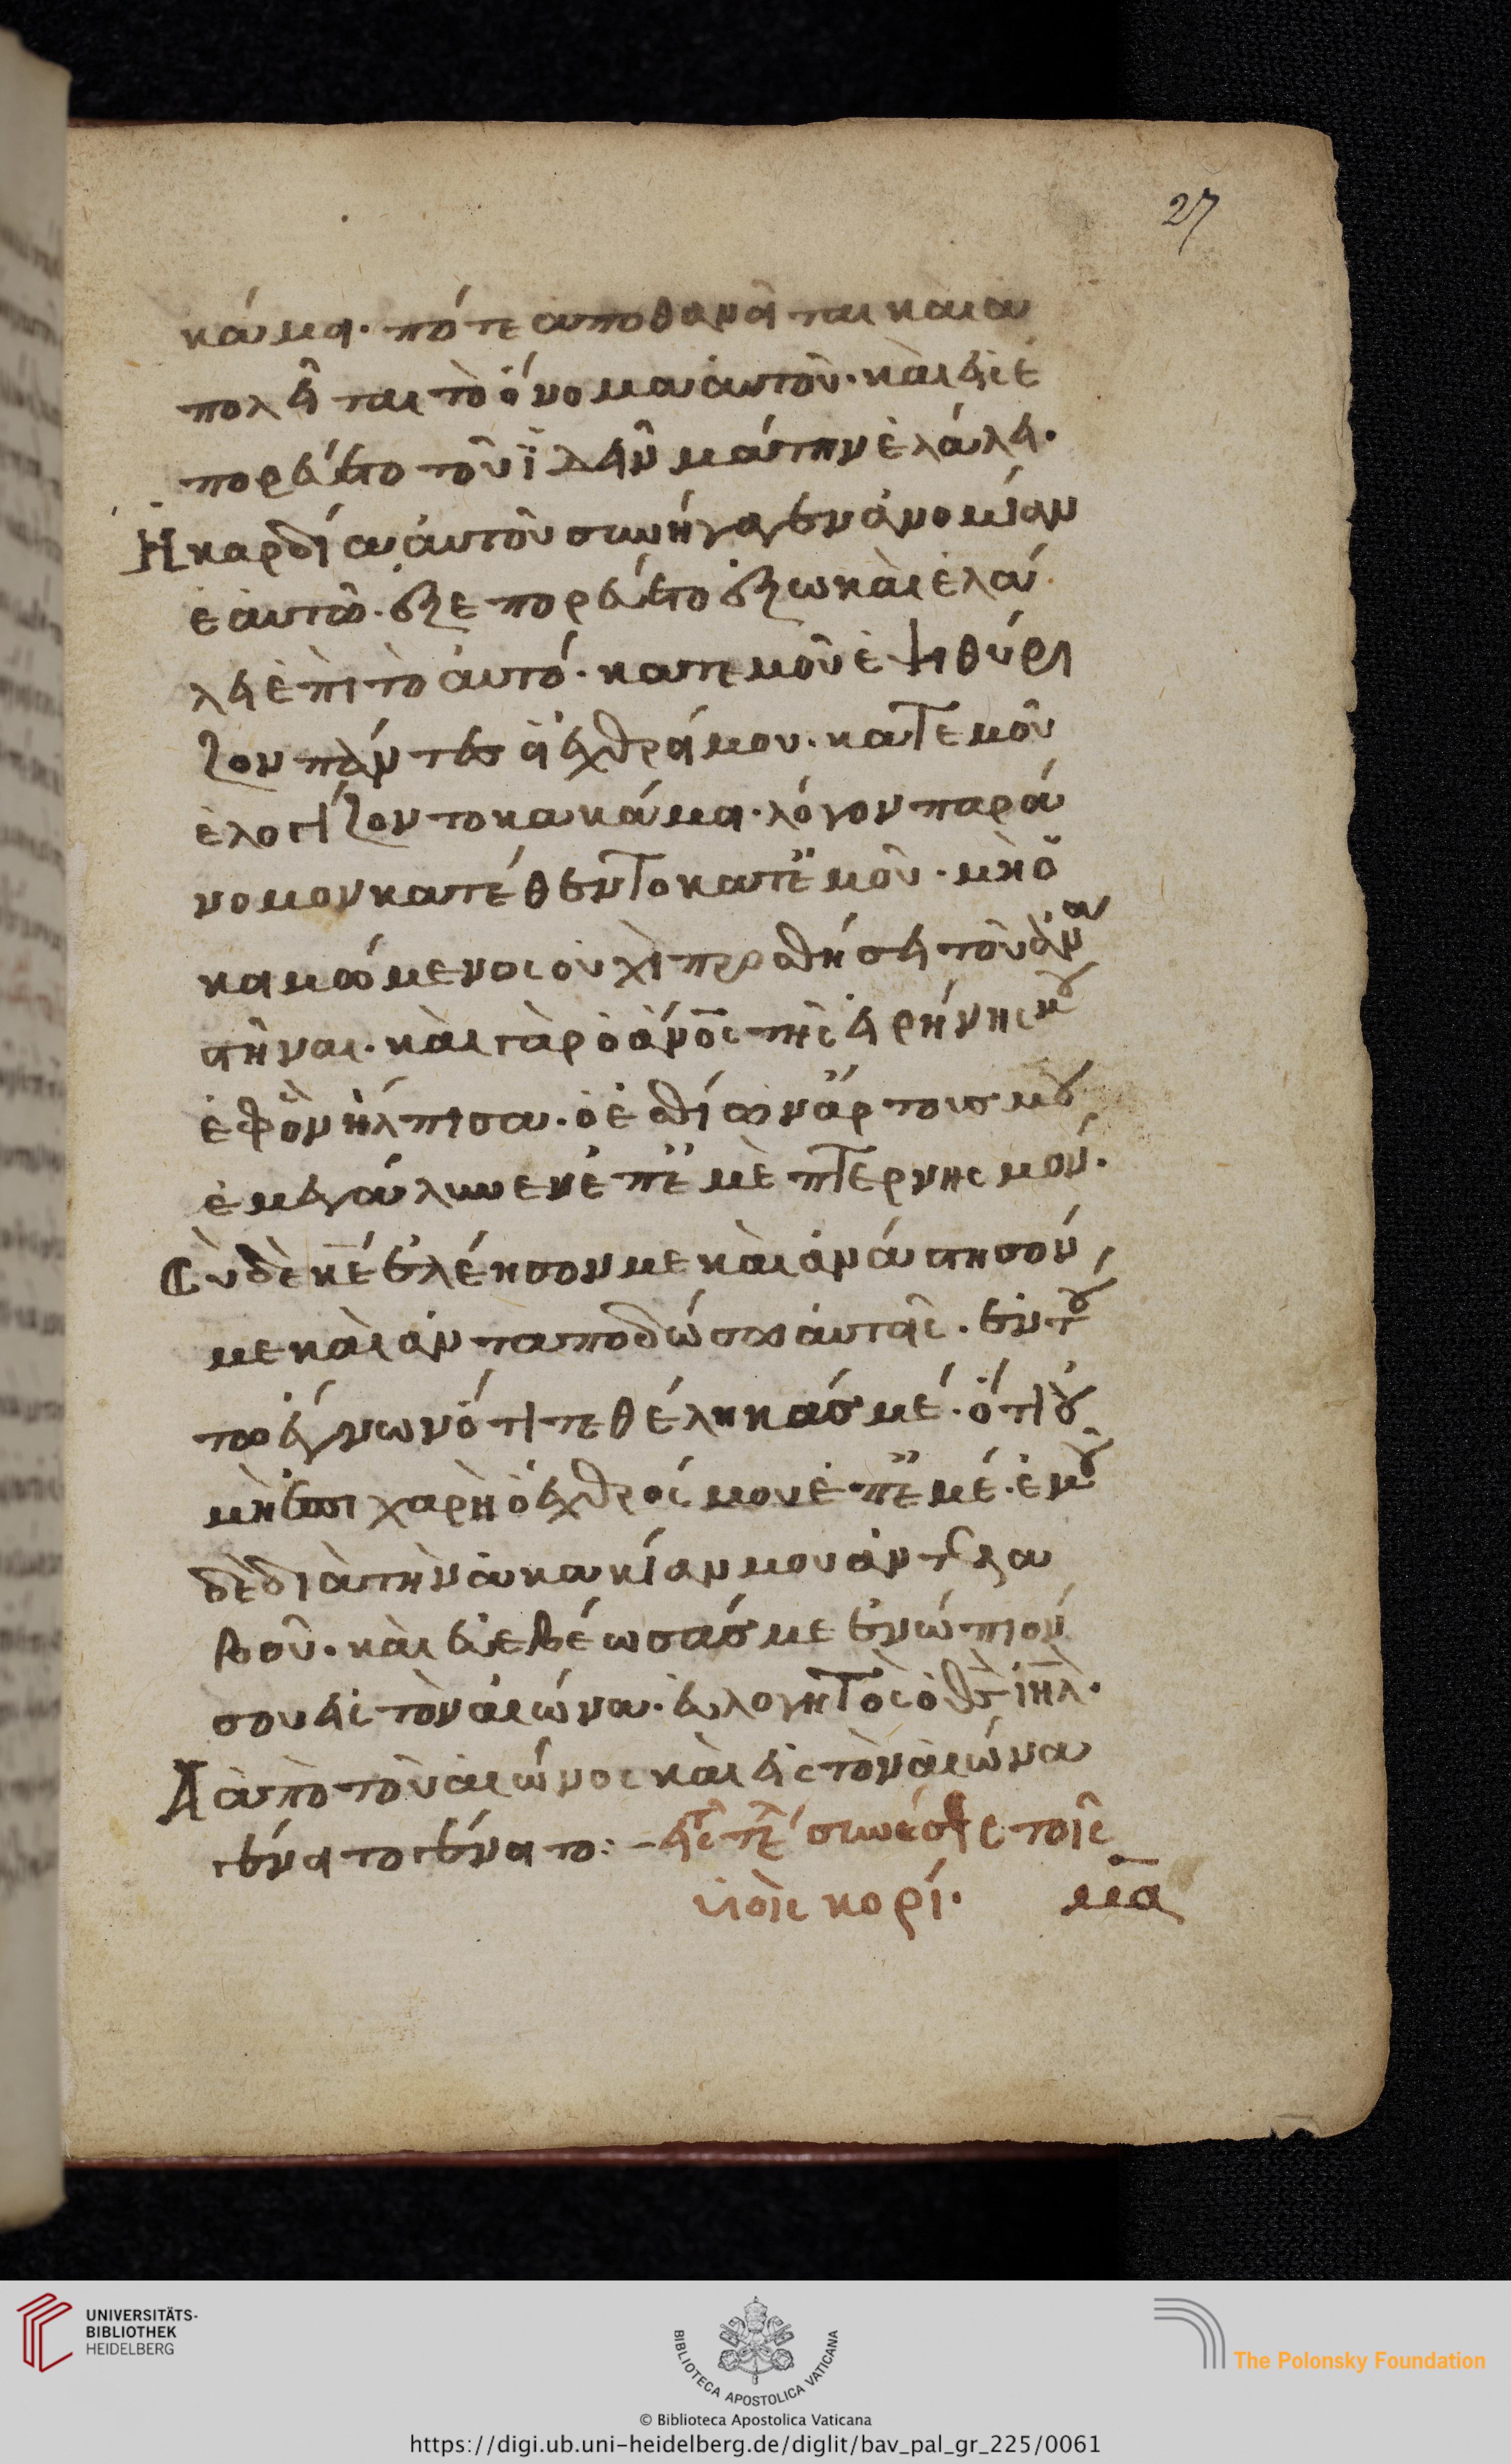 27
κά μοι. πότε ἀποθανεῖται καὶ ἀ
πολεῖται τὸ ὄνομα αὐτοῦ. καὶ εἰσε
πορεύετο τοῦ ἰδεῖν μάτην ἐλάλει.
Ἡ καρδία αὐτοῦ συνήγαγεν ἀνομίαν
ἑαυτῶ. ἐξεπορεύετο ἔξω καὶ ἐλά
λει ἐπιτοαυτό. κατεμοῦ ἐψιθύρι
ζον πάντες οἱ ἐχθροί μου. κατεμοῦ
ἐλογίζοντο κακά μοι. λόγον παρά
νομον κατέθεντο κατεμοῦ. μὴ ὁ
κοιμώμενος οὐχὶ προσθήσει τοῦ ἀνα
στῆναι. καὶ γὰρ ὁ ἄνος τῆς εἰρήνης μου
ἐφ ὃν ἤλπισα. ὁ ἐσθίων ἄρτους μου
ἐμεγάλυνεν ἐπεμὲ πτερνησμόν.
Σὺ δὲ κε ἐλέησόν με καὶ ἀνάστησόν
με καὶ ἀνταποδώσω αὐτοῖς. ἐν του
τω ἔγνων ὅτι τεθέληκάς με. ὅτι οὐ
μὴ ἐπιχαρῆ ὁ ἐχθρός μου ἐπεμέ. ἐμοῦ
δὲ διὰ τὴν ἀκακίαν μου ἀντελα
βου. καὶ ἐβεβαίωσάς με ἐνώπιόν
σου εἰς τὸν αἰῶνα. εὐλογητὸς ὁ θς ἰηλ.
Ἀπὸ τοῦ αἰῶνος καὶ εἰς τὸν αἰῶνα
γένοιτο γένοιτο:– εἰς τε συνέσεις τοῖς
υἱοῖς κορέ. μα
UNIVERSITÄTS-
BIBLIOTHEK
HEIDELBERG
BIBLIOTECA APOSTOLICA VATICANA
The Polonsky Foundation
© Biblioteca Apostolica Vaticana
https://digi.ub.uni-heidelberg.de/diglit/bav_pal_gr_225/0061